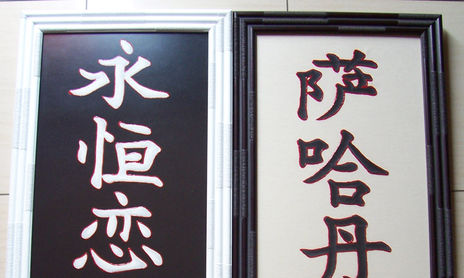 永恒恋
萨哈丹